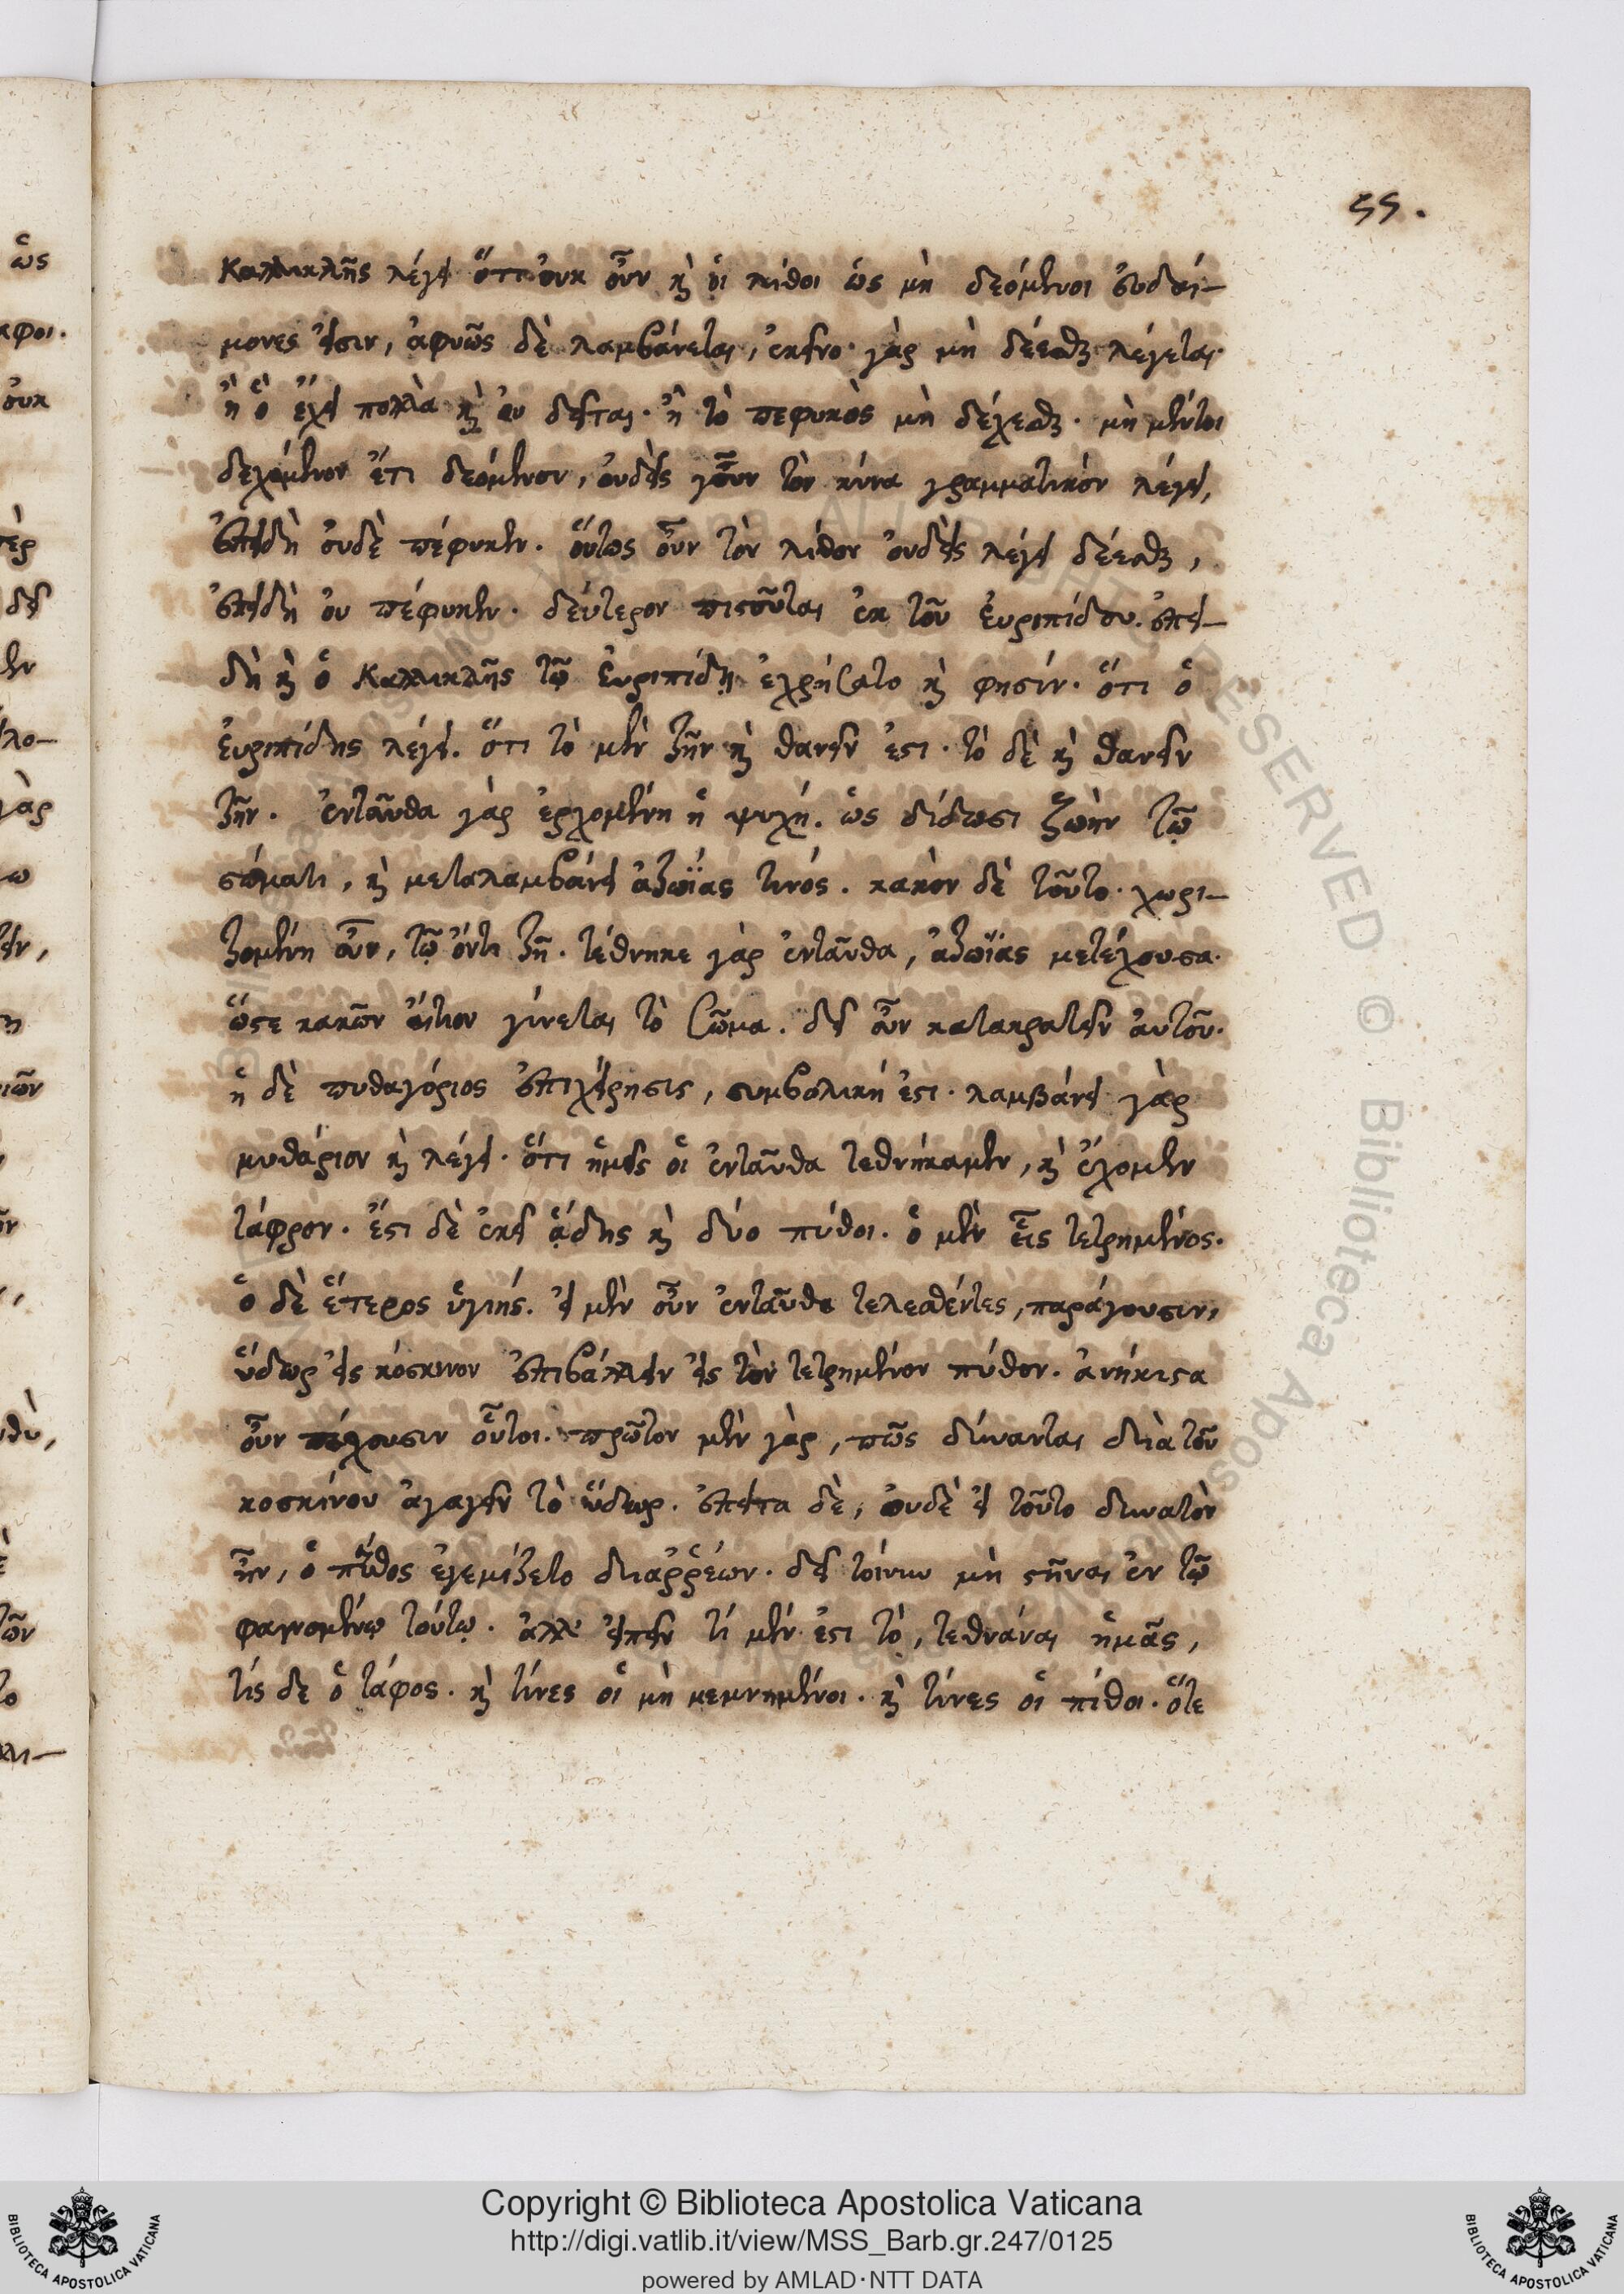 ϛϛ.
Καλλικλῆς λέγει ὅτι οὐκ οὖν καὶ οἱ λίθοι ὡς μὴ δεόμενοι εὐδαί-
μονες εἰσιν, ἀφυῶς δὲ λαμβάνεται, ἐκεῖνο γὰρ μὴ δέεσθαι λέγεται·
ἢ ὃ ἔχει πολλὰ καὶ οὐ δεῖται. ἢ τὸ πεφυκὸς μὴ δέχεσθαι. μὴ μέντοι
δεχόμενον ἔτι δεόμενον, οὐδεὶς γοῦν τὸν κύνα γραμματικόν λέγει,
ἐπειδὴ οὐδὲ πέφυκεν. οὕτως οὖν τὸν λίθον οὐδεὶς λέγει δέεσθαι,
ἐπειδὴ οὐ πέφυκεν. δεύτερον πιστοῦται ἐκ τοῦ εὐριπίδου. ἐπει-
δὴ καὶ ὁ Καλλικλῆς τῷ εὐριπίδῃ ἐχρήσατο καὶ φησίν. ὅτι ὁ
εὐριπίδης λέγει. ὅτι τὸ μὲν ζῆν καὶ θανεῖν ἐστι. τὸ δὲ καὶ θανεῖν
ζῆν. ἐνταῦθα γὰρ ἐρχομένη ἡ ψυχή. ὡς δίδωσι ζωὴν τῷ
σώματι, καὶ μεταλαμβάνει ἀζωΐας τινός. κακόν δὲ τοῦτο. χωρι-
ζομένη οὖν, τῷ ὄντι ζῇ. τέθνηκε γὰρ ἐνταῦθα, ἀζωΐας μετέχουσα.
ὥστε κακῶν αἴτιον γίνεται τὸ σῶμα. δεῖ οὖν κατακρατεῖν αὐτοῦ.
ἡ δὲ πυθαγόριος ἐπιχείρησις, συμβολική ἐστι. λαμβάνει γὰρ
μυθάριον καὶ λέγει. ὅτι ἡμεῖς οἱ ἐνταῦθα τεθνήκαμεν, καὶ ἔχομεν
τάφρον. ἔστι δὲ ἐκεῖ ᾅδης καὶ δύο πύθοι. ὁ μὲν εἷς τετρημένος.
ὁ δὲ ἕτερος ὑγιής. εἰ μὲν οὖν ἐνταῦθα τελεσθέντες, παράγουσιν,
ὕδωρ εἰς κόσκινον ἐπιβάλλειν εἰς τὸν τετρημένον πύθον. ἀνήκιστα
οὖν πάχουσιν οὗτοι. πρῶτον μὲν γὰρ, πῶς δύνανται διὰ τοῦ
κοσκίνου ἀγαγεῖν τὸ ὕδωρ. ἔπειτα δὲ, οὐδὲ εἰ τοῦτο δυνατὸν
ἦν, ὁ πῖθος ἐγεμίζετο διαῤῥέων. δεῖ τοίνυν μὴ στῆναι ἐν τῷ
φαινομένῳ τούτῳ. ἀλλ' εἰπεῖν τί μέν ἐστι τὸ, τεθνάναι ἡμᾶς,
τίς δε ὁ τάφος. καὶ τίνες οἱ μὴ μεμνημένοι. καὶ τίνες οἱ πίθοι. ὅτε
Copyright © Biblioteca Apostolica Vaticana
http://digi.vatlib.it/view/MSS_Barb.gr.247/0125
powered by AMLAD·NTT DATA